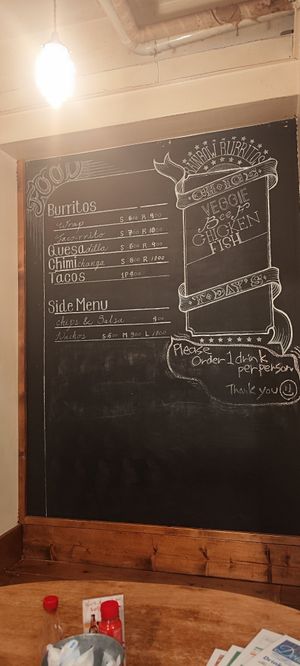 FOOD
Burritos
Wrap S 600 R 900
S 700 R 1000
Quesadilla S 600 R 900
Chimichanga S 800 R 1100
Tacos 1P 400
Side Menu
Chips & Salsa 400
Nachos S 600 M 900 L 1200
RAINBOW BURRITOS
CHOICE
VEGGIE
CHICKEN
FISH
TODAY'S
Please
Order 1 drink
per person
Thank you